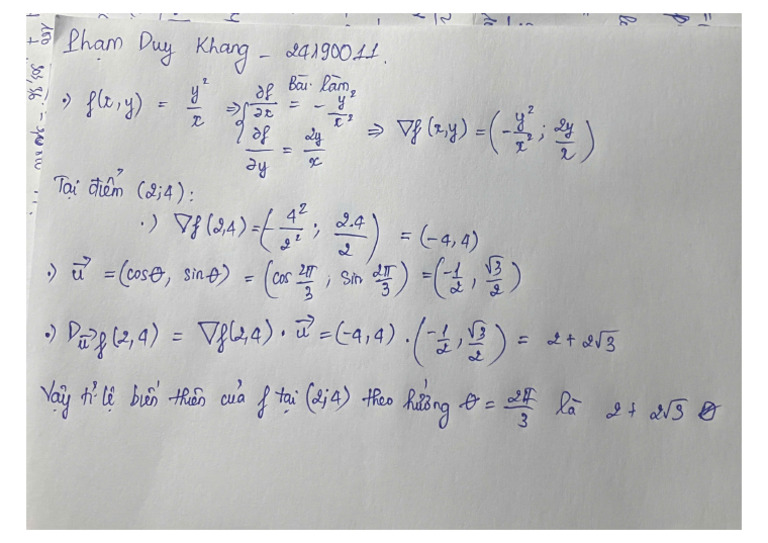 Phạm Duy Khang - 24190011.
Bài làm
•) f(x,y) = y²/x ⇒ { ∂f/∂x = -y²/x² ; ∂f/∂y = 2y/x ⇒ ∇f(x,y) = (-y²/x² ; 2y/x)
Tại điểm (2;4):
•) ∇f(2,4) = (-4²/2² ; 2.4/2) = (-4,4)
•) u⃗ = (cosθ, sinθ) = (cos 2π/3 ; sin 2π/3) = (-1/2, √3/2)
•) D_u⃗ f(2,4) = ∇f(2,4) · u⃗ = (-4,4) · (-1/2, √3/2) = 2 + 2√3
Vậy tỉ lệ biến thiên của f tại (2;4) theo hướng θ = 2π/3 là 2 + 2√3